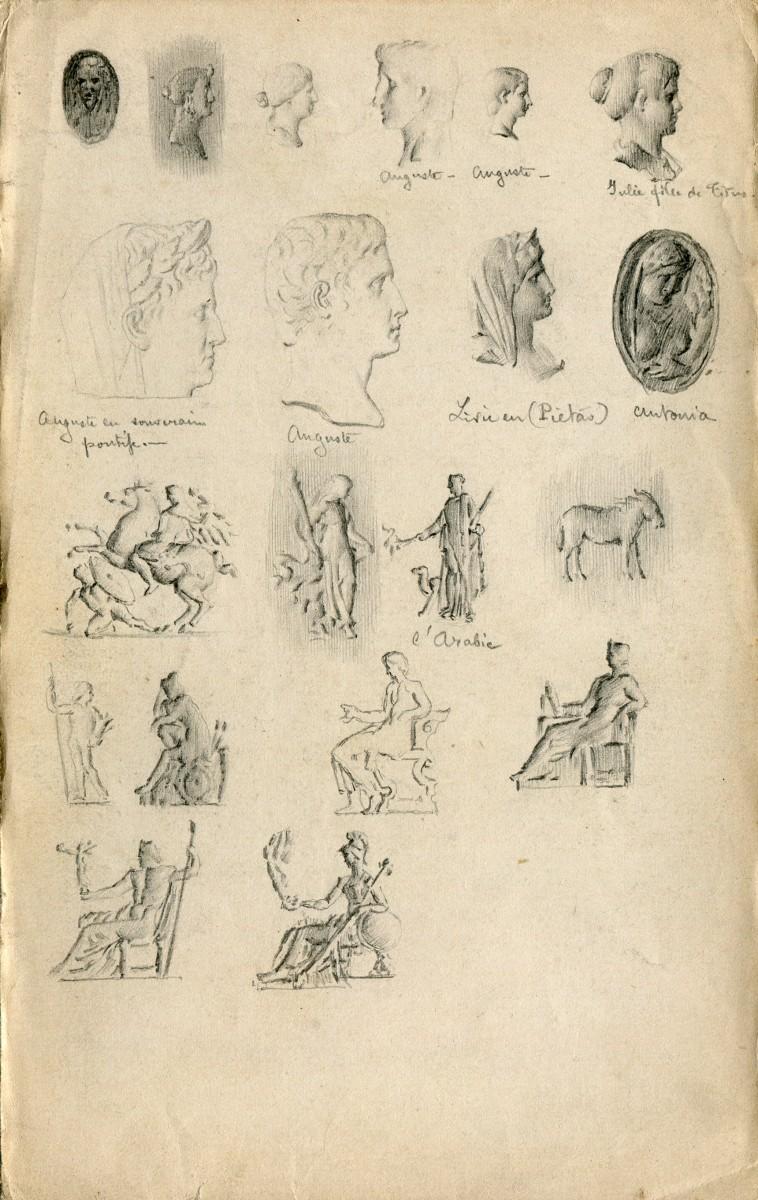 Auguste - Auguste -
Julie fille de Titus.
Auguste en souverain
pontife.—
Auguste
Livie en (Pietas)
Antonia
l'Arabie